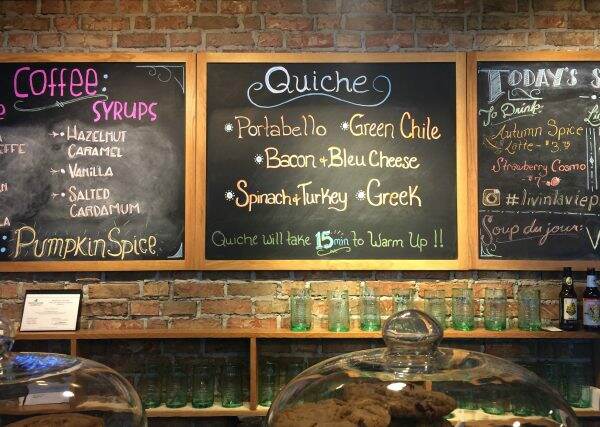 Coffee:
SYRUPS
Hazelnut
Caramel
Vanilla
Salted
Cardamum
Pumpkin Spice
Quiche
Portabello Green Chile
Bacon & Bleu Cheese
Spinach & Turkey Greek
Quiche will take 15min to Warm Up!!
Today's S
To Drink:
Autumn Spice
Latte-
Strawberry Cosmo
#livinlaviep
Soup du jour: